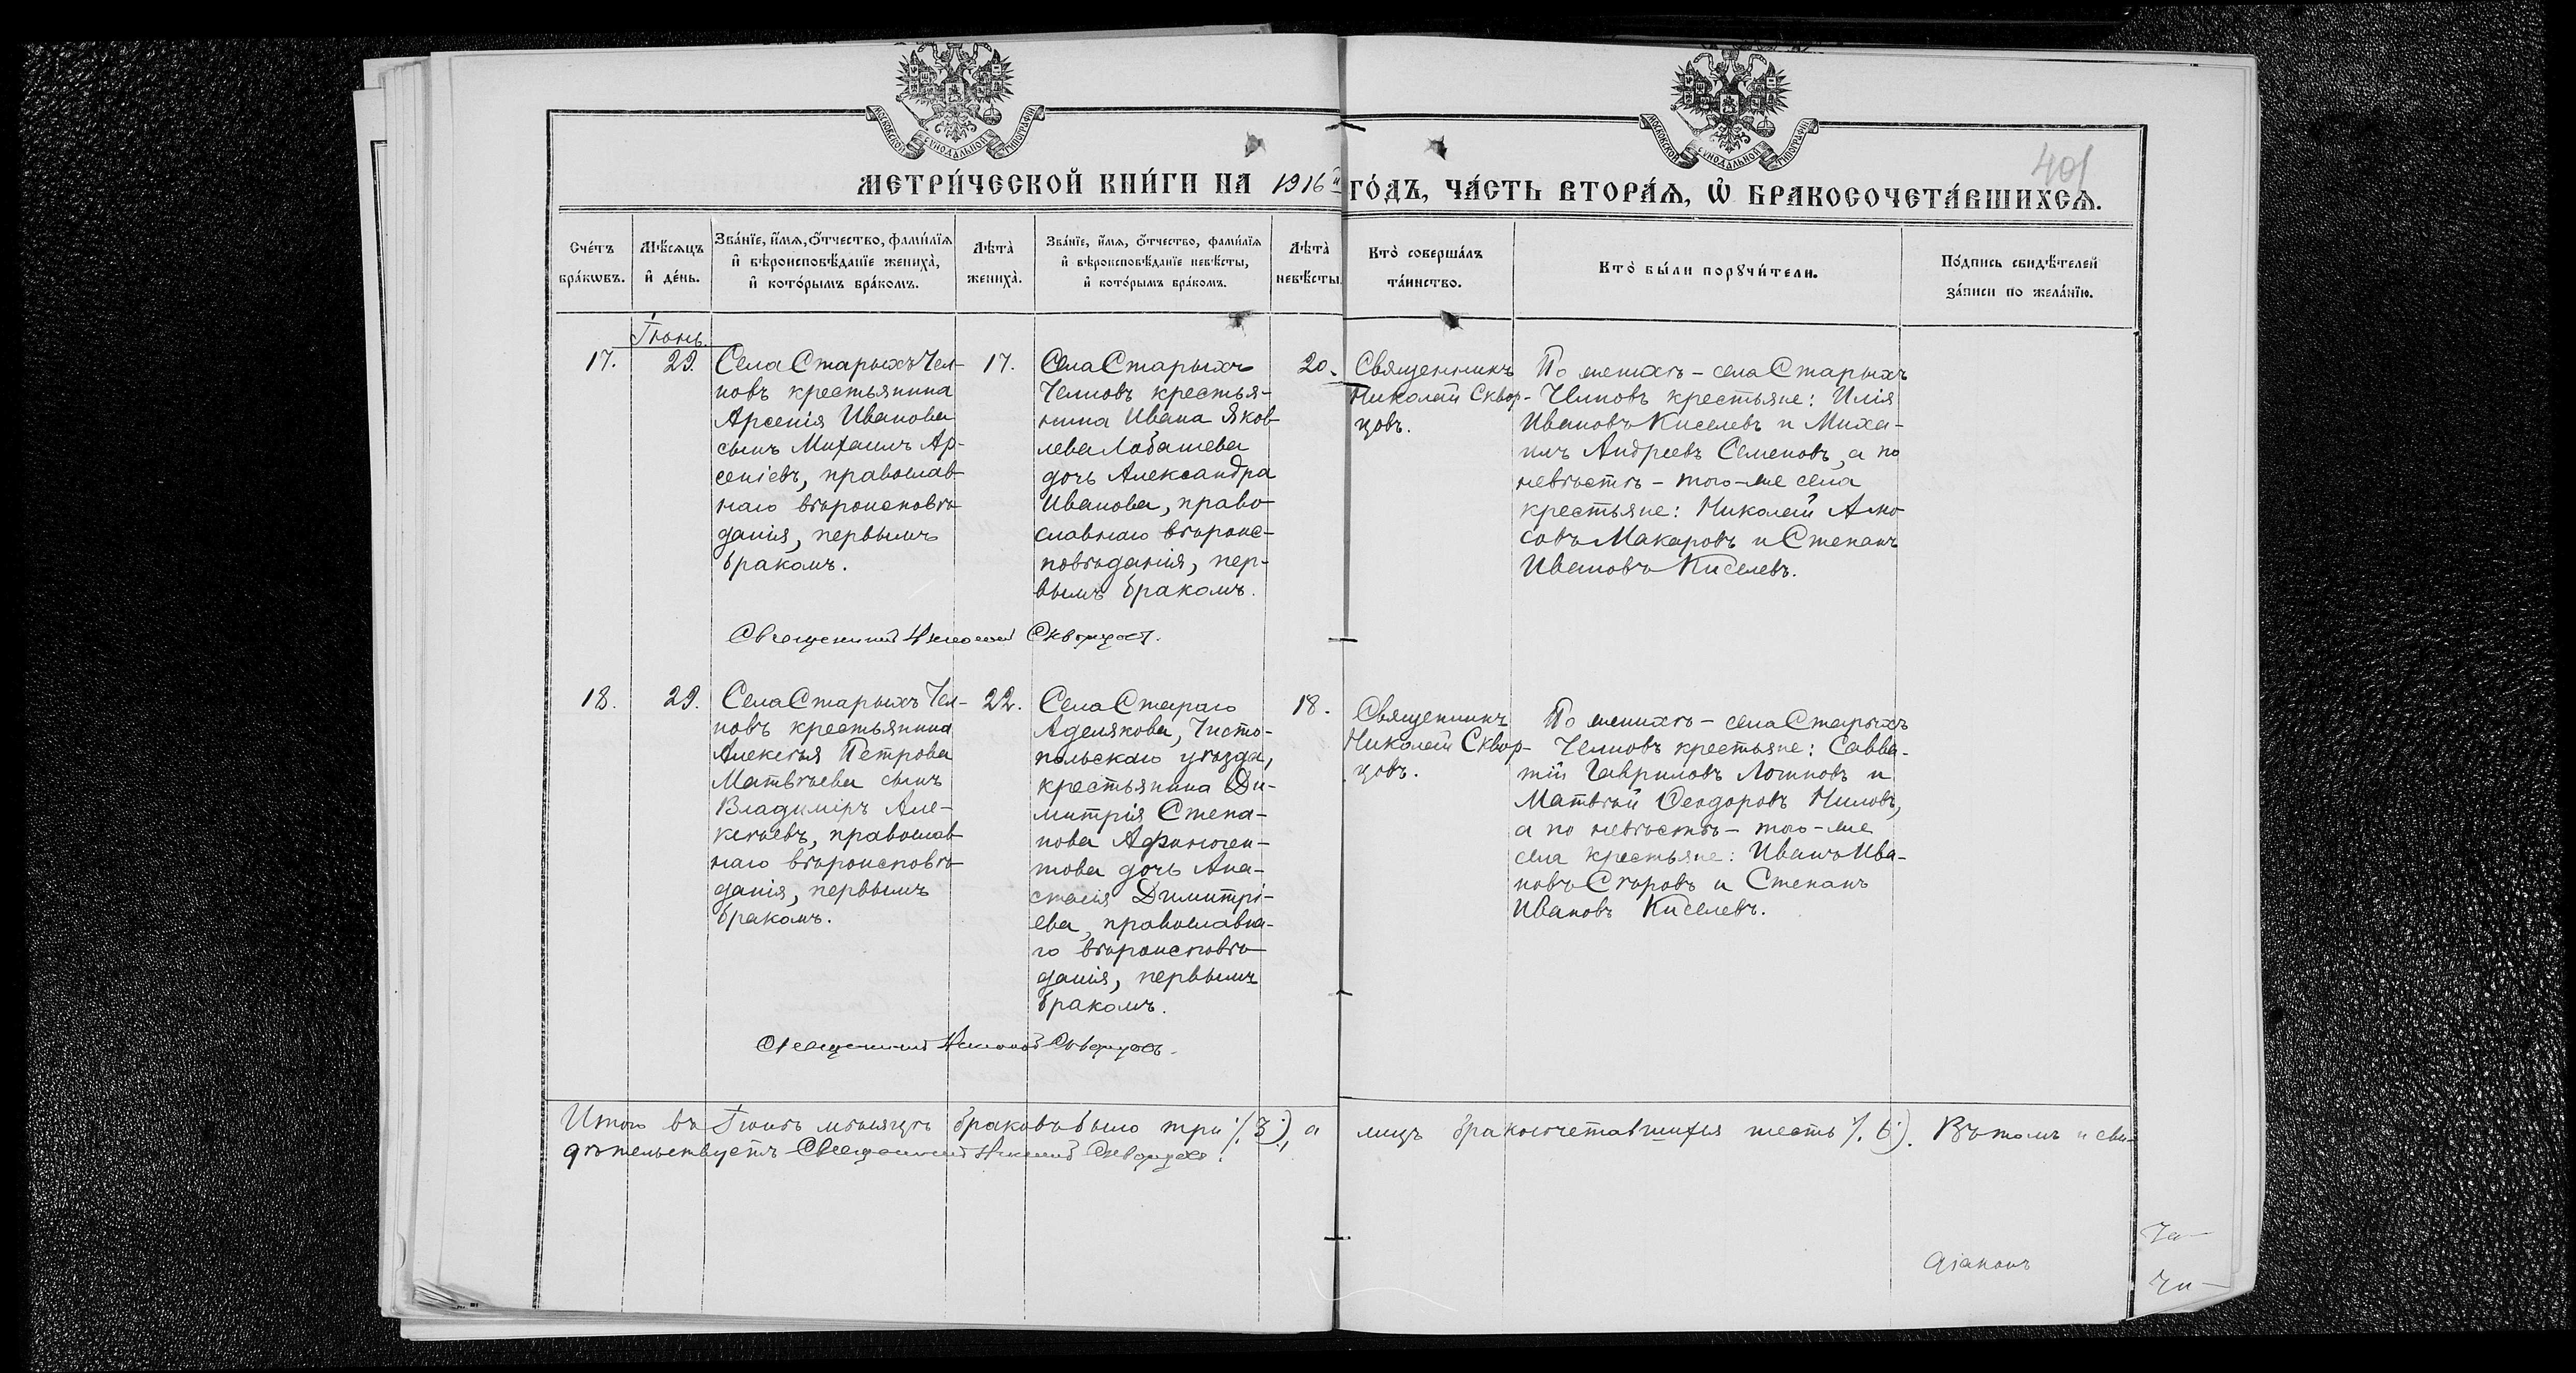 МОСКОВСКОЙ СИНОДАЛЬНОЙ ТИПОГРАФІИ
МОСКОВСКОЙ СИНОДАЛЬНОЙ ТИПОГРАФІИ
401
МЕТРИ́ЧЕСКОЙ КНИ́ГИ НА 1916й ГО́ДЪ, ЧА́СТЬ ВТОРА́Ѧ, Ѽ БРАКОСОЧЕТА́ВШИХСѦ.
Сче́тъ бра́кѡвъ.
Мѣ́сѧцъ и҆ де́нь.
Зва́нїе, и҆́мѧ, ѻ҆́тчество, фами́лїѧ и҆ вѣроисповѣ́данїе жениха̀, и҆ кото́рымъ бра́комъ.
Лѣта̀ жениха̀.
Зва́нїе, и҆́мѧ, ѻ҆́тчество, фами́лїѧ и҆ вѣроисповѣ́данїе невѣ́сты, и҆ кото́рымъ бра́комъ.
Лѣта̀ невѣ́сты.
Кто̀ соверша́лъ та́инство.
Кто̀ бы́ли порꙋчи́тели.
По́дпись свидѣ́телей за́писи по жела́нїю.
Іюнь.
17.
29.
Села Старыхъ Чел-
новъ крестьянина
Арсенія Иванова
сынъ Михаилъ Ар-
сеніевъ, православ-
наго вѣроисповѣ-
данія, первымъ
бракомъ.
17.
Села Старыхъ
Челновъ крестья-
нина Ивана Яков-
лева Лобашева
дочь Александра
Иванова, право-
славнаго вѣроис-
повѣданія, пер-
вымъ бракомъ.
20.
Священникъ
Николай Сквор-
цовъ.
По женихѣ - села Старыхъ
Челновъ крестьяне: Илія
Ивановъ Киселевъ и Миха-
илъ Андреевъ Семеновъ, а по
невѣстѣ - того-же села
крестьяне: Николай Амо-
совъ Макаровъ и Степанъ
Ивановъ Киселевъ.
Священникъ Николай Скворцовъ.
18.
29.
Села Старыхъ Чел-
новъ крестьянина
Алексѣя Петрова
Матвѣева сынъ
Владиміръ Але-
ксѣевъ, православ-
наго вѣроисповѣ-
данія, первымъ
бракомъ.
22.
Села Стараго
Адемякова, Чисто-
польскаго уѣзда,
крестьянина Ди-
митрія Степа-
нова Афиноген-
това дочь Ана-
стасія Димитрі-
ева, православна-
го вѣроисповѣ-
данія, первымъ
бракомъ.
18.
Священникъ
Николай Сквор-
цовъ.
По женихѣ - села Старыхъ
Челновъ крестьяне: Савва-
тій Гавриловъ Логиновъ и
Матвѣй Ѳеодоровъ Ниловъ,
а по невѣстѣ - того-же
села крестьяне: Иванъ Ива-
новъ Егоровъ и Степанъ
Ивановъ Киселевъ.
Священникъ Николай Скворцовъ.
Итого въ Іюнѣ мѣсяцѣ браковъ было три /. 3 ./, а лицъ бракосочетавшихся шесть /. 6 ). Въ томъ и сви-
дѣтельствуетъ Священникъ Николай Скворцовъ.
Діаконъ